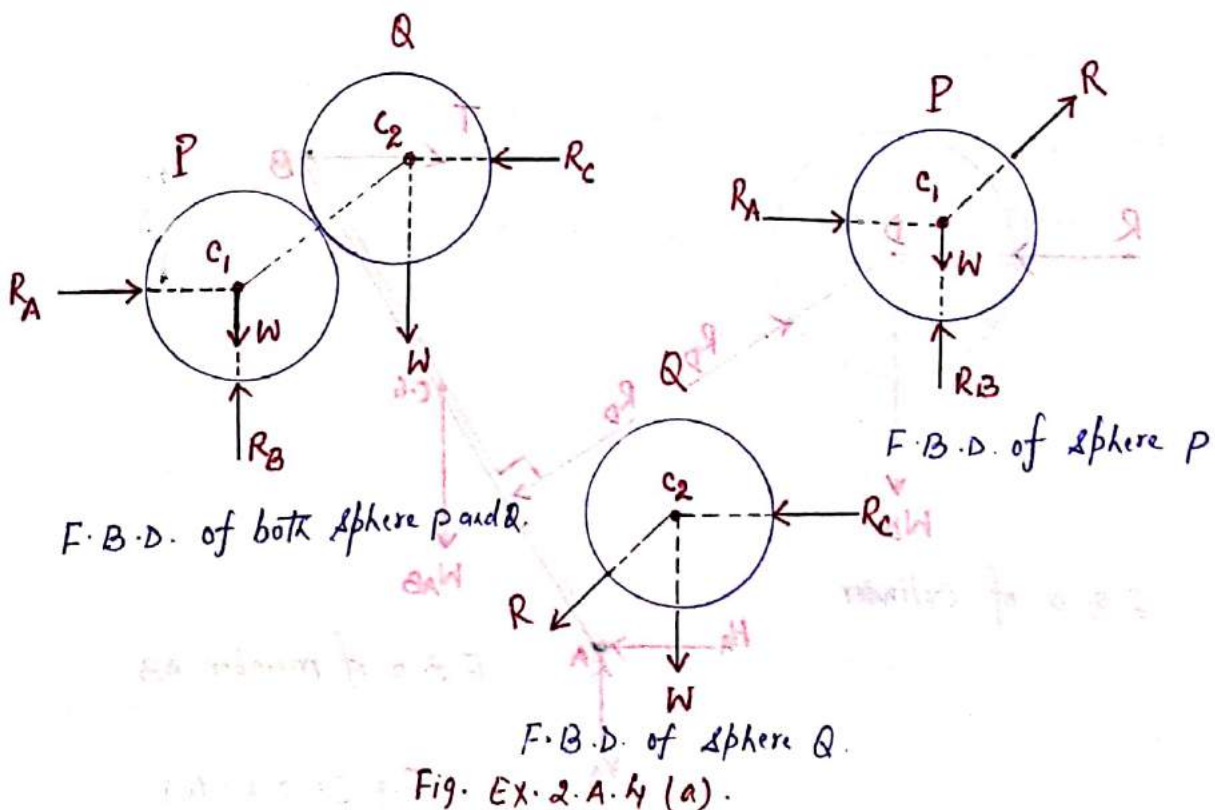 Q
P
C₂
R_C
C₁
R_A
W
W
R_B
F.B.D. of both sphere P and Q.
P
R
R_A
C₁
W
R_B
F.B.D. of sphere P
Q
C₂
R_C
R
W
F.B.D. of sphere Q.
Fig. EX. 2.A.4 (a).